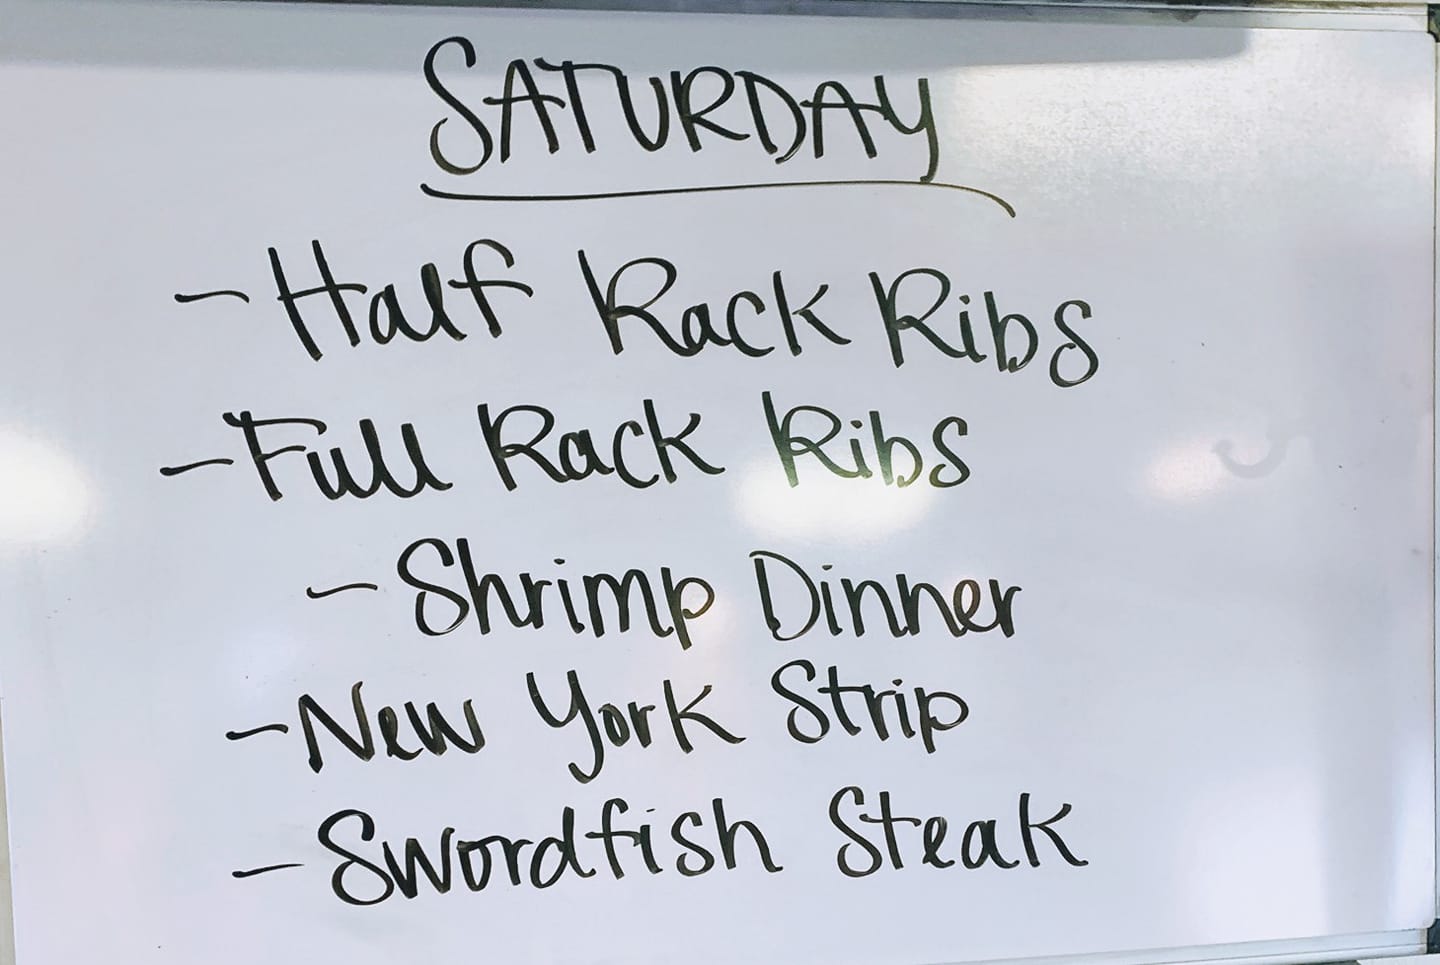 SATURDAY
- Half Rack Ribs
- Full Rack Ribs
- Shrimp Dinner
- New York Strip
- Swordfish Steak